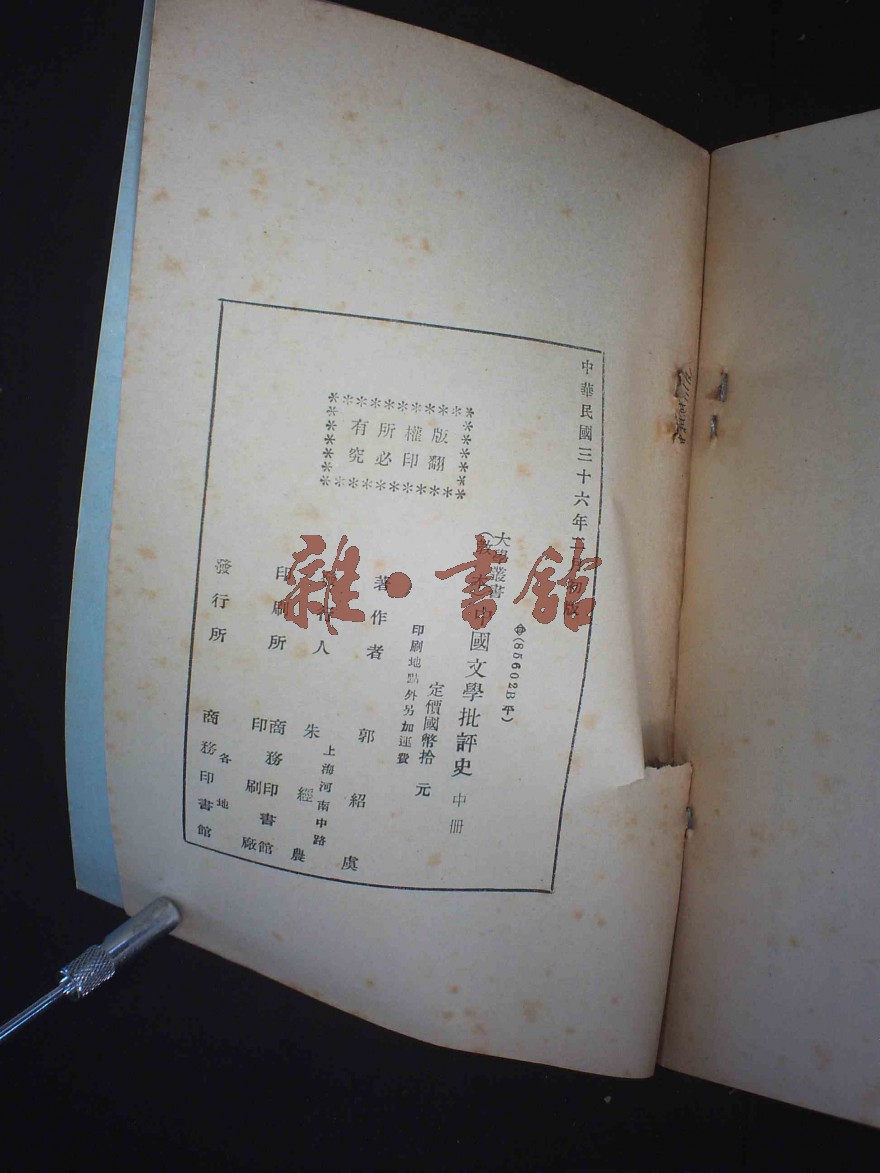 中華民國三十六年三月初版
⊕(85602B平)
大學叢書
(教本)中國文學批評史 中冊
定價國幣拾元
印刷地點外另加運費
版權所有
翻印必究
著作者 郭紹虞
發行人 朱經農
上海河南中路
印刷所 商務印書館
印刷廠
發行所 商務印書館
各地
雜·書館